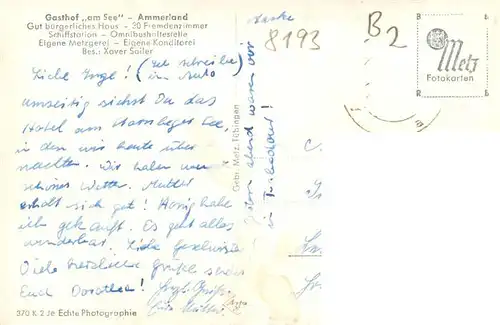 Gasthof „am See" - Ammerland
Gut bürgerliches Haus - 30 Fremdenzimmer
Schiffstation - Omnibushaltestelle
Eigene Metzgerei - Eigene Konditorei
Bes.: Xaver Sailer
Liebe Inge! (Ich schreibe
im Auto
umseitig siehst Du das
Hotel am Starnberger See,
in dem wir heute über
nachten. Wir haben
schönes Wetter. Mutter
erholt sich gut! Honig habe
ich gekauft. Es geht alles
wunderbar. Liebe
Viele herzliche Grüße
Euch Dorothee!
Gebr. Metz, Tübingen
abend waren wir
in
8193
B2
Metz
Fotokarten
370 K 2 Je Echte Photographie